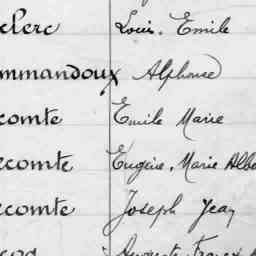 clerc Louis. Emile
mmandoux Alphonse
comte Emile Marie
ecomte Eugène. Marie Albe
ecomte Joseph Jean